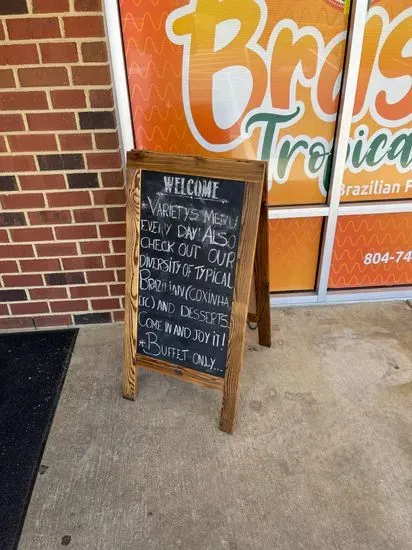 Bras
Tropica
Brazilian F
804-74
WELCOME
*VARIETYS MENU
EVERY DAY! ALSO
CHECK OUT OUR
DIVERSITY OF TYPICAL
BRAZILIAN (COXINHA,
ETC) AND DESSERTS
COME IN AND JOY IT!
*BUFFET ONLY...